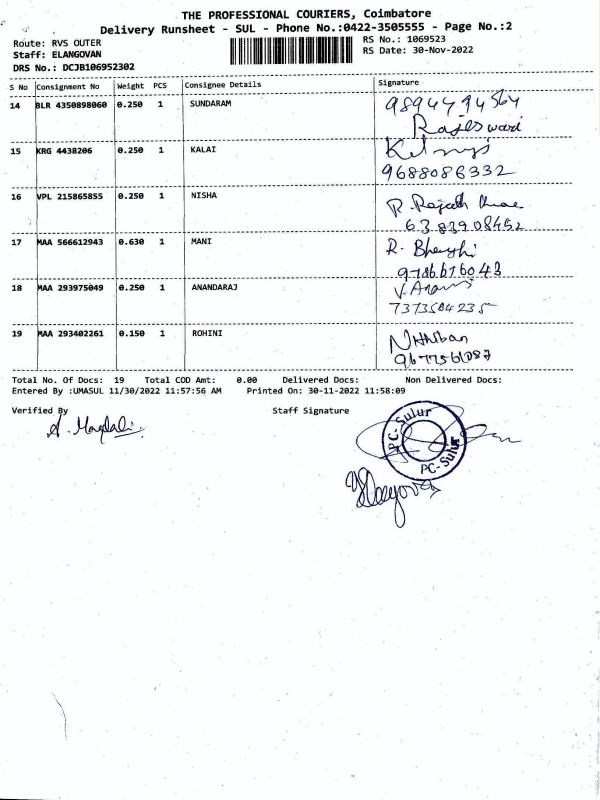 THE PROFESSIONAL COURIERS, Coimbatore
Delivery Runsheet - SUL - Phone No.:0422-3505555 - Page No.:2
Route: RVS OUTER RS No.: 1069523
Staff: ELANGOVAN RS Date: 30-Nov-2022
DRS No.: DCJB106952302
S No Consignment No Weight PCS Consignee Details Signature
14 BLR 4350898060 0.250 1 SUNDARAM 9894494564
Rajeswari
15 KRG 4438206 0.250 1 KALAI
9688086332
16 VPL 215865855 0.250 1 NISHA R. Rajesh
6383908452
17 MAA 566612943 0.630 1 MANI R.
9786676043
18 MAA 293975049 0.250 1 ANANDARAJ V.
7373504235
19 MAA 293402261 0.150 1 ROHINI Nithiban
Total No. Of Docs: 19 Total COD Amt: 0.00 Delivered Docs: Non Delivered Docs:
Entered By :UMASUL 11/30/2022 11:57:56 AM Printed On: 30-11-2022 11:58:09
Verified By Staff Signature
PC-Sulur
PC-Sulur